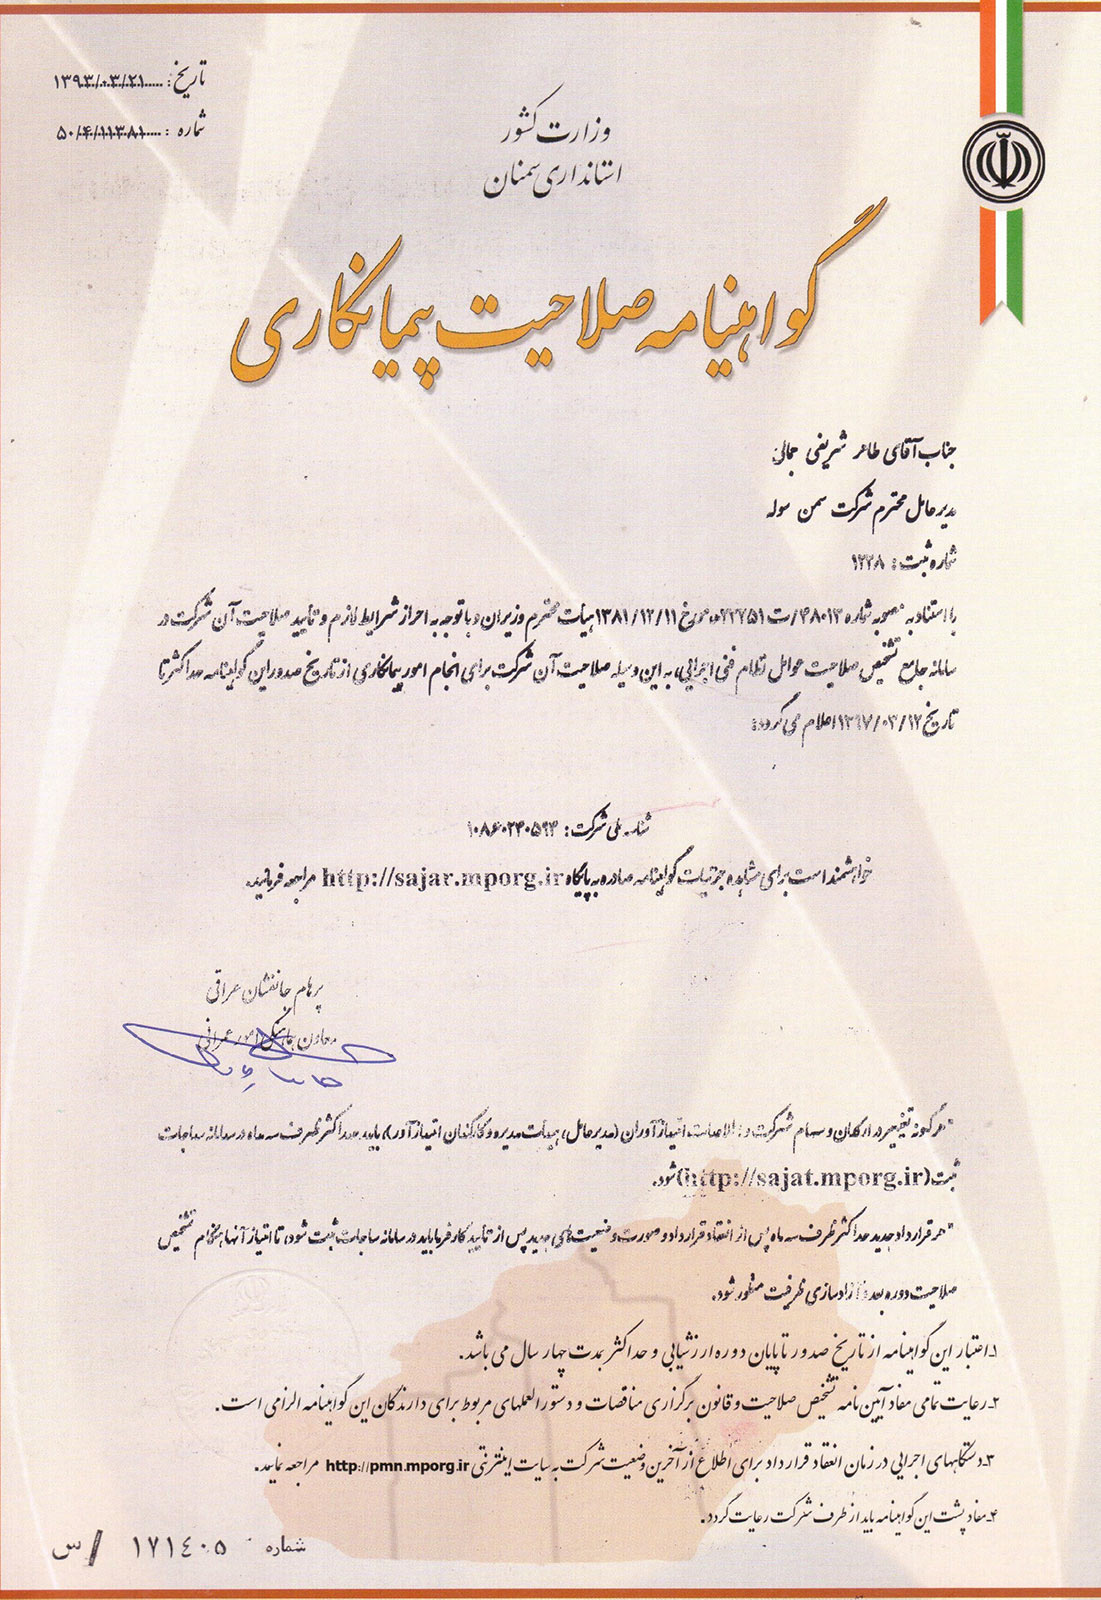 تاریخ: ۱۳۹۳/۰۳/۲۱
شماره: ۵۰/۴/۱۱۳۸۱
وزارت کشور
استانداری سمنان
گواهینامه صلاحیت پیمانکاری
جناب آقای طاهر شریفی جمالی
مدیرعامل محترم شرکت سمن سوله
شماره ثبت: ۱۲۲۸
با استناد به مصوبه شماره ۴۸۰۱۳/ت۲۳۲۵۱ه مورخ ۱۳۸۱/۱۲/۱۱ هیأت محترم وزیران و با توجه به احراز شرایط لازم و تأیید صلاحیت آن شرکت در
سامانه جامع تشخیص صلاحیت عوامل نظام فنی اجرایی، به این وسیله صلاحیت آن شرکت برای انجام امور پیمانکاری از تاریخ صدور این گواهینامه حداکثر تا
تاریخ ۱۳۹۷/۰۳/۱۲ اعلام می گردد:
شناسه ملی شرکت: ۱۰۸۶۰۲۴۰۵۹۴
خواهشمند است برای مشاهده جزئیات گواهینامه صادره به پایگاه http://sajar.mporg.ir مراجعه فرمائید.
پرهام جانفشان عراقی
معاون هماهنگی امور عمرانی
*هرگونه تغییر در ارکان و سهام شرکت و اطلاعات امتیازآوران (مدیرعامل، هیئت مدیره و کارکنان امتیازآور)، باید حداکثر ظرف سه ماه در سامانه ساجات
ثبت (http://sajat.mporg.ir) شود.
*هر قرارداد جدید حداکثر ظرف سه ماه پس از انعقاد قرارداد و صورت وضعیت های جدید پس از تأیید کارفرما باید در سامانه ساجات ثبت شود، تا امتیاز آنها هنگام تشخیص
صلاحیت دوره بعد و آزادسازی ظرفیت منظور شود.
۱ـ اعتبار این گواهینامه از تاریخ صدور تا پایان دوره ارزشیابی و حداکثر بمدت چهار سال می باشد.
۲ـ رعایت تمامی مفاد آیین نامه تشخیص صلاحیت و قانون برگزاری مناقصات و دستورالعملهای مربوط برای دارندگان این گواهینامه الزامی است.
۳ـ دستگاههای اجرایی در زمان انعقاد قرارداد برای اطلاع از آخرین وضعیت شرکت به سایت اینترنتی http://pmn.mporg.ir مراجعه نمایند.
۴ـ مفاد پشت این گواهینامه باید از طرف شرکت رعایت گردد.
شماره ۱۷۱۴۰۵ /س